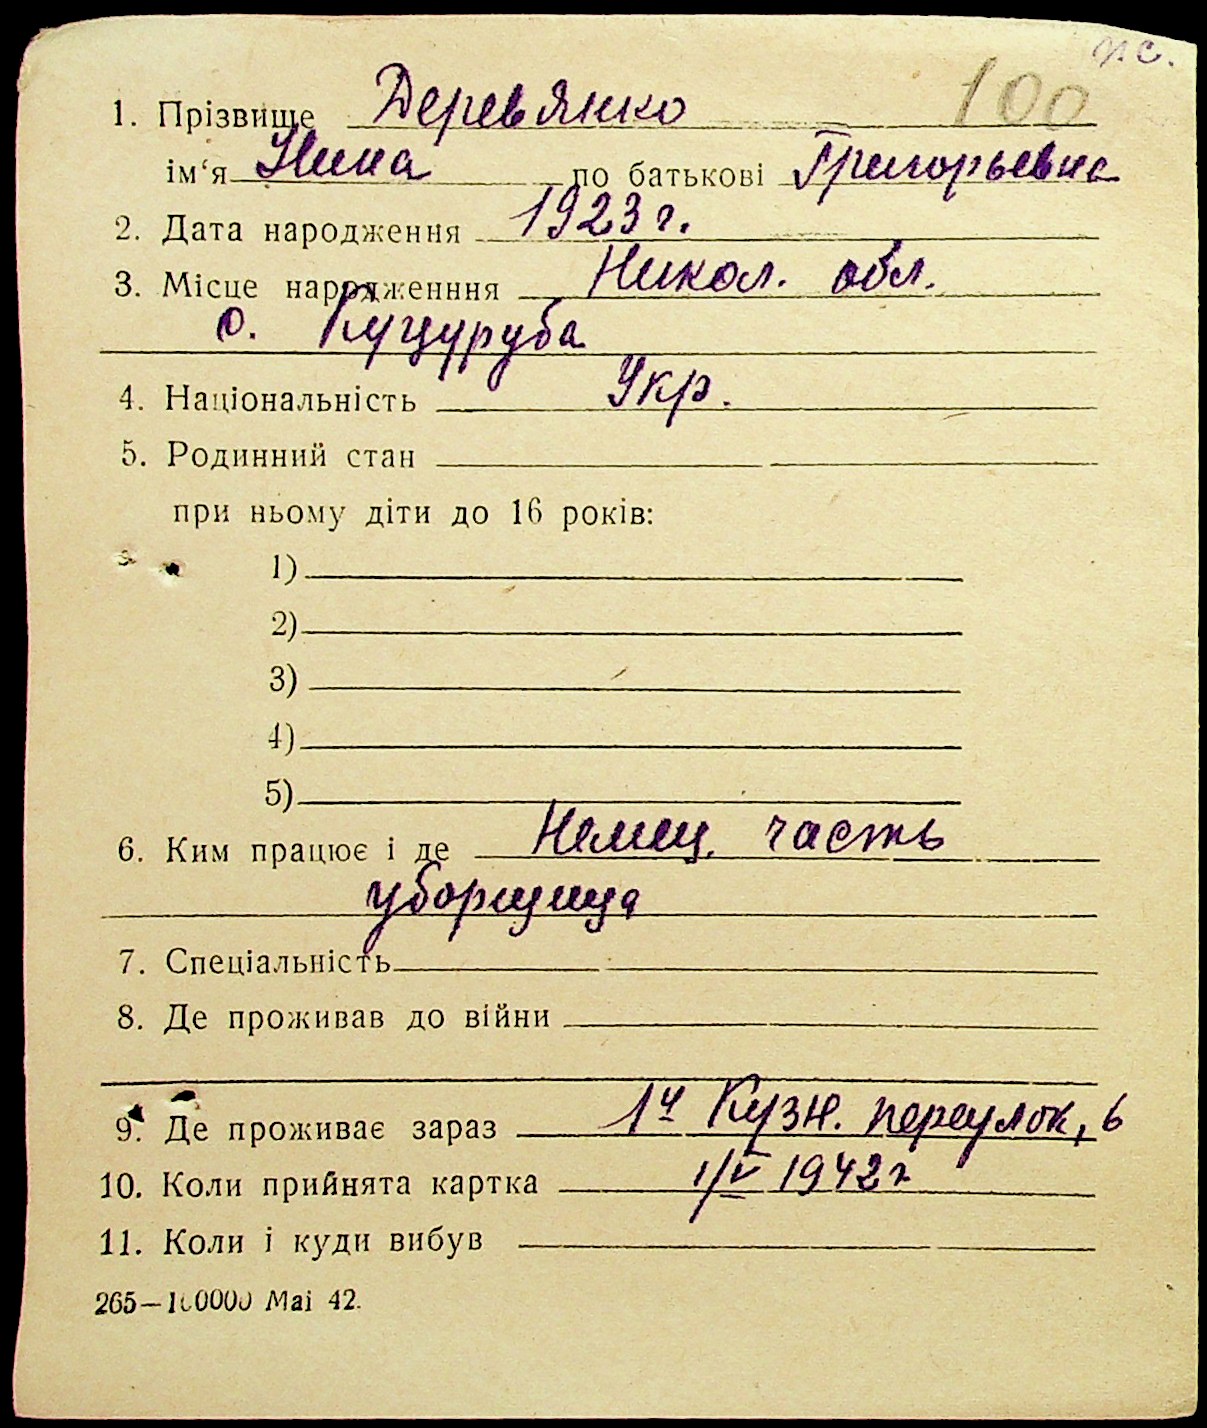 п.с.
100
1. Прізвище Деревянко
ім‘я Нина по батькові Григорьевна
2. Дата народження 1923 г.
3. Місце народженння Никол. обл.
с. Куцуруба
4. Національність Укр.
5. Родинний стан
при ньому діти до 16 років:
1)
2)
3)
4)
5)
6. Ким працює і де Немец. часть
уборщица
7. Спеціальність
8. Де проживав до війни
9. Де проживає зараз 1й Кузн. переулок, 6
10. Коли прийнята картка 1/V 1942 г
11. Коли і куди вибув
265—100000 Маі 42.